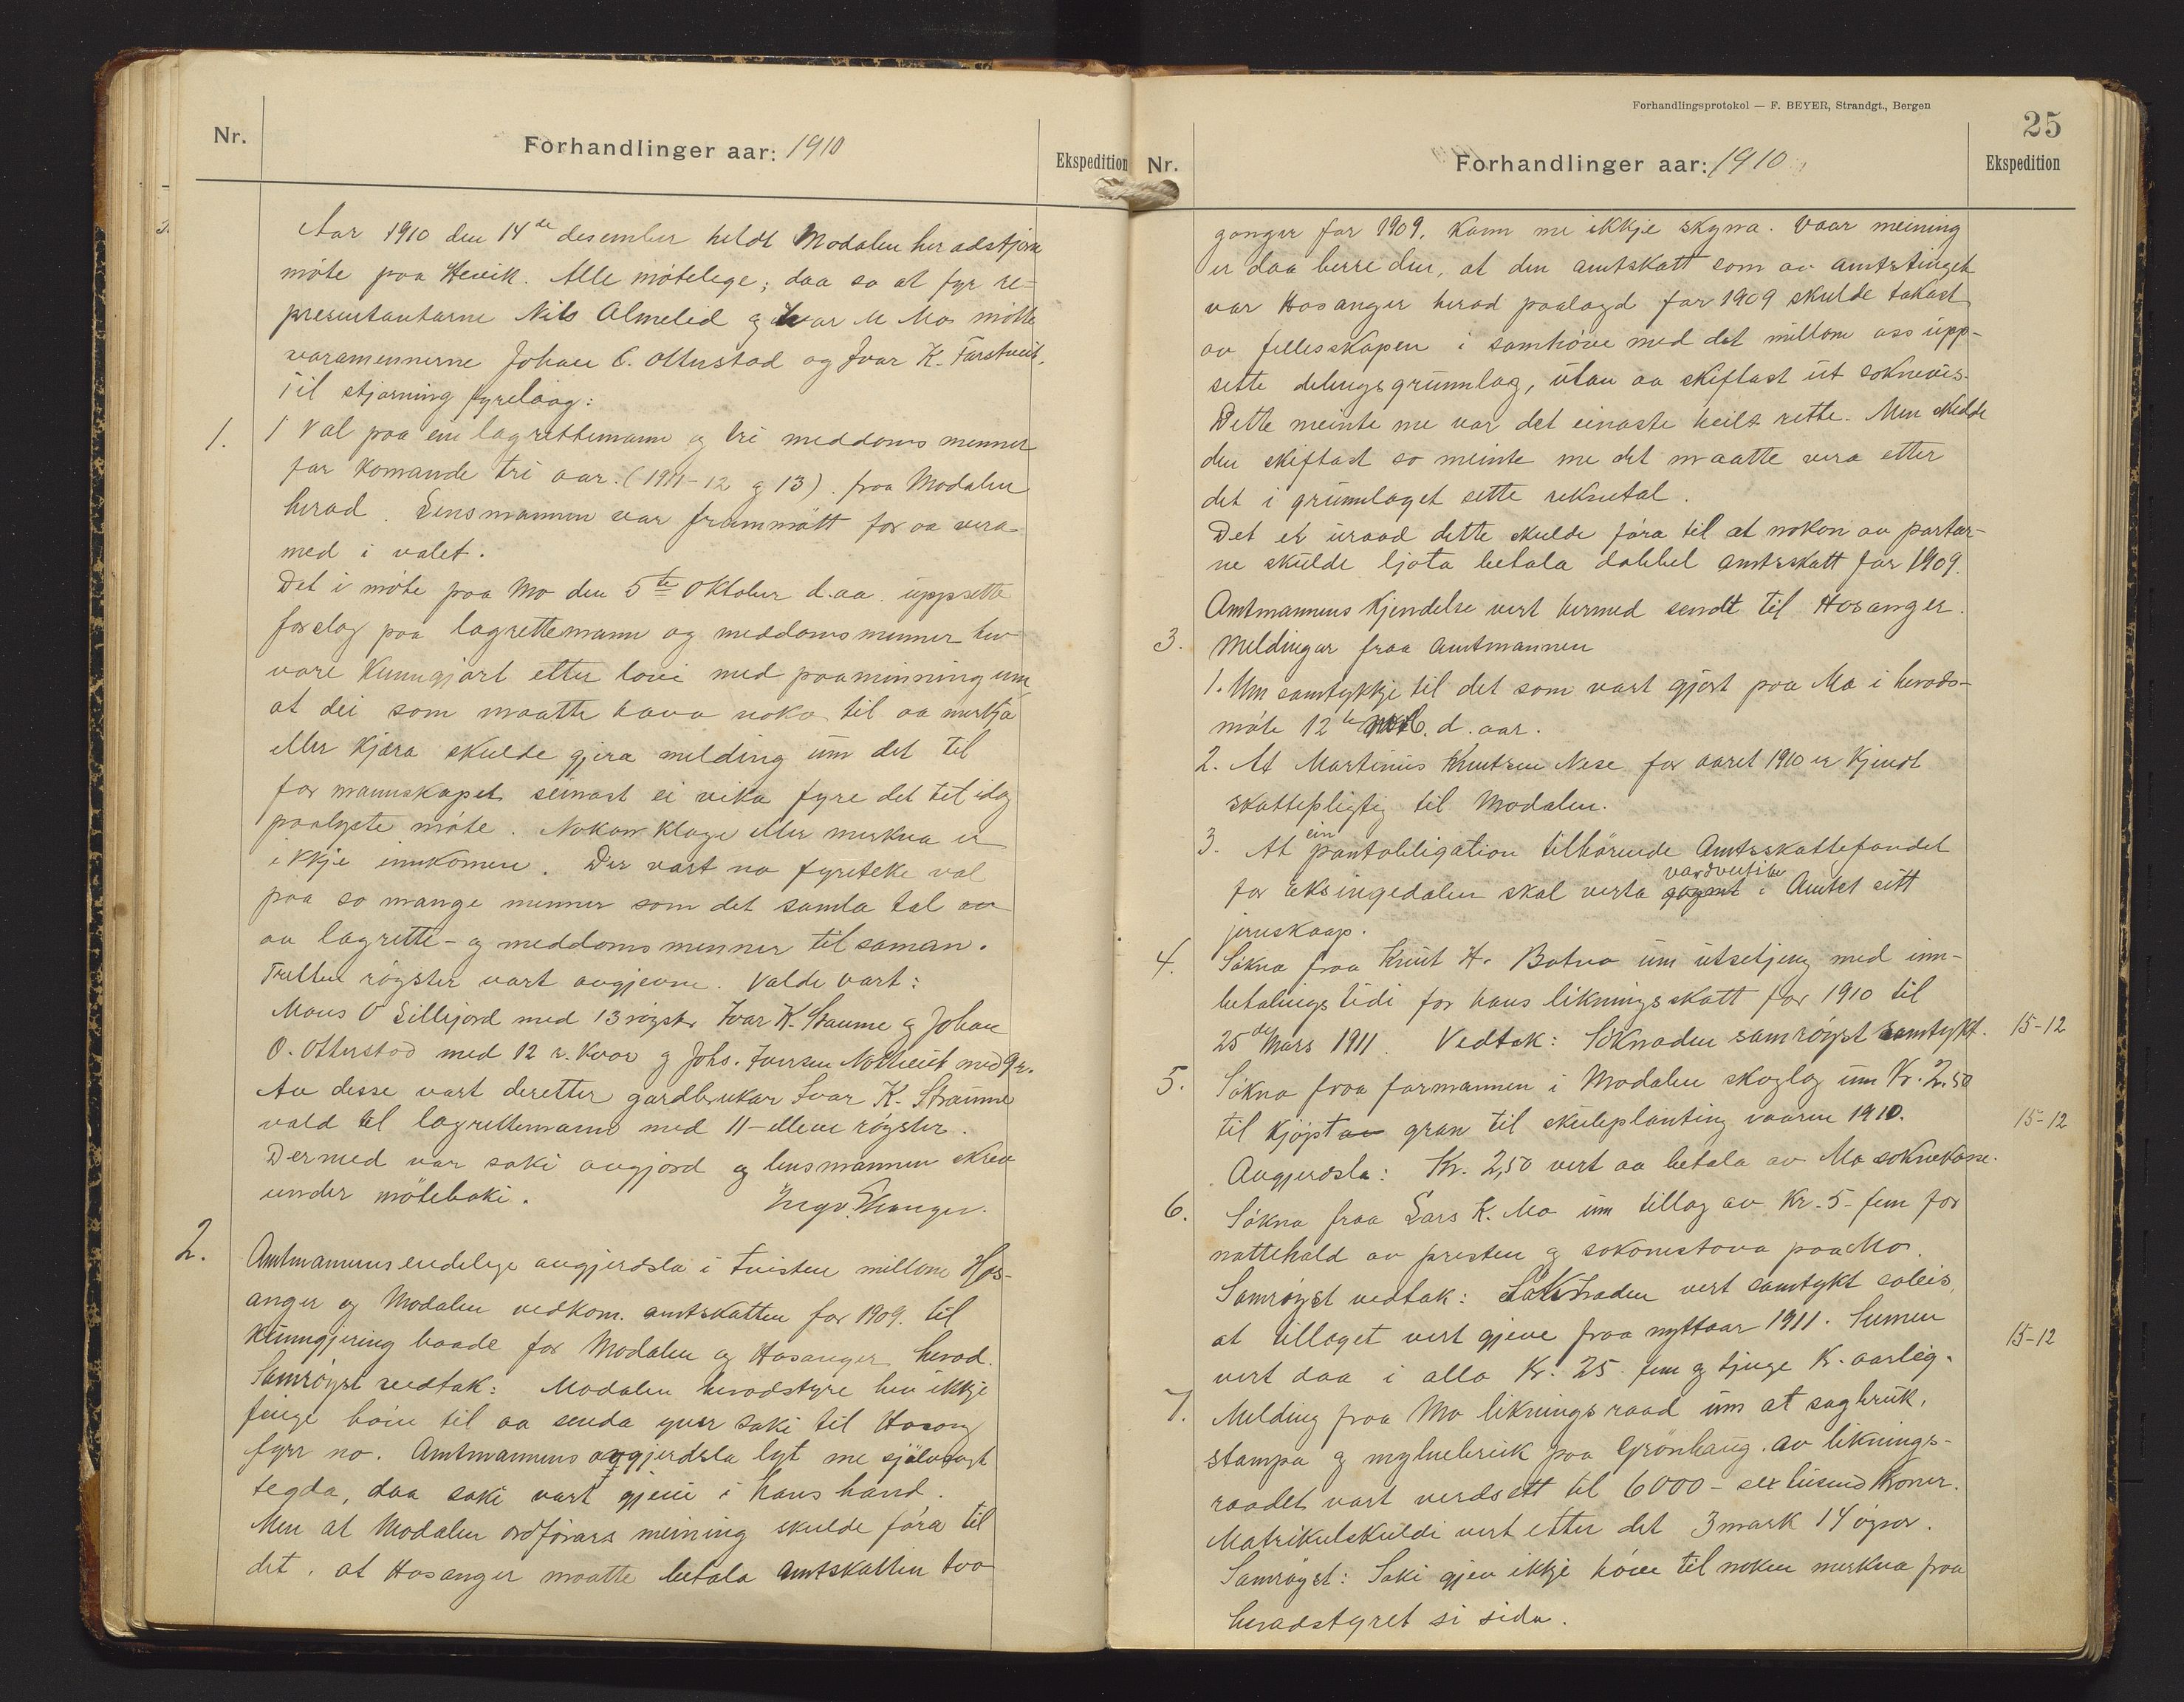 Nr.
Forhandlinger aar: 1910
Ekspedition
Aar 1910 den 14de desember heldt Modalen heradstyre
möte paa Henik. Alle mötelege; daa so at fyr re-
presentantarne Nils Almelid og Ivar M Mo mötte
varamennerne Johan O. Otterstad og Ivar K. Farstveit.
Til stjorning fyrelaag:
1. 1 Val paa ein lagrettemann og tri meddoms menner
for komande tri aar. (1911-12 og 13) fraa Modalen
herad. Lensmannen var frammött for aa vera
med i valet.
Det i möte paa Mo den 5te Oktober d.aa. uppsette
forslag paa lagrettemann og meddomsmenner hev
vore kunngjort etter lovi med paaminning um
at dei som maatte hava noko til aa merkja
eller kjæra skulde gjera melding um det til
formannskapet seinast ei vika fyre det til idag
paalyste möte. Nokon klage eller merkna er
ikkje innkomen. Der vart no fyreteke val
paa so mange menner som det samla tal av
av lagrette- og meddomsmenner til saman.
Trettan röyster vart avgjevne. Valde vart:
Mons O Sillijord med 13 röyster Ivar K. Straume og Johan
O. Otterstad med 12 r. kvar og Johs. Iversen Nottveit med 9 r.
Av desse vart deretter gardbrukar Ivar K. Straume
vald til lagrettemann med 11 - elleve röyster.
Dermed var saki avgjord og lensmannen skrev
under möteboki.
2. Amtmannens endelege avgjerdsla i tvisten millom Hos-
anger og Modalen vedkom. amtskatten for 1909. til
kunngjering baade for Modalen og Hosanger herad.
Samröyst vedtak: Modalen heradstyre hev ikkje
fenge höve til aa senda yver saki til Hosang
fyrr no. Amtmannens avgjerdsla lyt me sjölvsagt
tegda, daa saki vart gjevi i hans hand.
Men at Modalen ordförars meining skulde föra til
det, at Hosanger maatte betala amtskatten tvo
Forhandlingsprotokol — F. BEYER, Strandgt., Bergen
25
Nr.
Forhandlinger aar: 1910
Ekspedition
gonger for 1909, kann me ikkje skyna. Vaar meining
er daa berre den, at den amtskatt som av amtstinget
var Hosanger herad paalagd for 1909 skulde takast
av fellesskapen i samhöve med det millom oss upp-
sette delingsgrunnlag, utan aa skiftast ut soknevis.
Dette meinte me var det einaste heilt rette. Men skulde
den skiftast so meinte me det maatte vera etter
det i grunnlaget sette reknetal.
Det er uraad dette skulde föra til at nokon av partar-
ne skulde ljota betala dobbel amtsskatt for 1909.
Amtmannens Kjendelse vert hermed sendt til Hosanger.
3. Meldingar fraa amtmannen
1. Um samtykkje til det som vart gjort paa Mo i herads-
möte 12te d. aar.
2. At Martinus Knutsen Nese for aaret 1910 er kjendt
skattepligtig til Modalen.
3. At ein pantobligation tilhörende Amtsskattefondet
for Eksingedalen skal verta vardveitte i Amtet sitt
jernskaap.
4. Sökna fraa Knut H. Botna um utsetjing med inn-
betalings tidi for hans likningsskatt for 1910 til
25de Mars 1911. Vedtak: Söknaden samröyst samtykt. 15-12
5. Sökna fraa formannen i Modalen skoglag um Kr. 2.50
til kjöpt av gran til skuleplanting vaaren 1910. 15-12
Avgjerdsla: Kr. 2,50 vert aa betala av Mo soknekasse.
6. Sökna fraa Lars K. Mo um tillag av Kr. 5 - fem for
nattehald av presten og sokonstova paa Mo.
Samröyst vedtak: Söknaden vert samtykt soleis,
at tillaget vert gjeve fraa nyttaar 1911. Sumen 15-12
vert daa i alla Kr. 25. fem og tjuge Kr. aarleg.
7. Melding fraa Mo likningsraad um at sagbruk,
stampa og mylnebruk paa Grönhaug. av liknings-
raadet vart verdsett til 6000 - sex tusund kronor.
Matrikulskuldi vert etter det 3 mark 14 öyror.
Samröyst: Saki gjev ikkje höve til noken merkna fraa
heradstyret si sida.